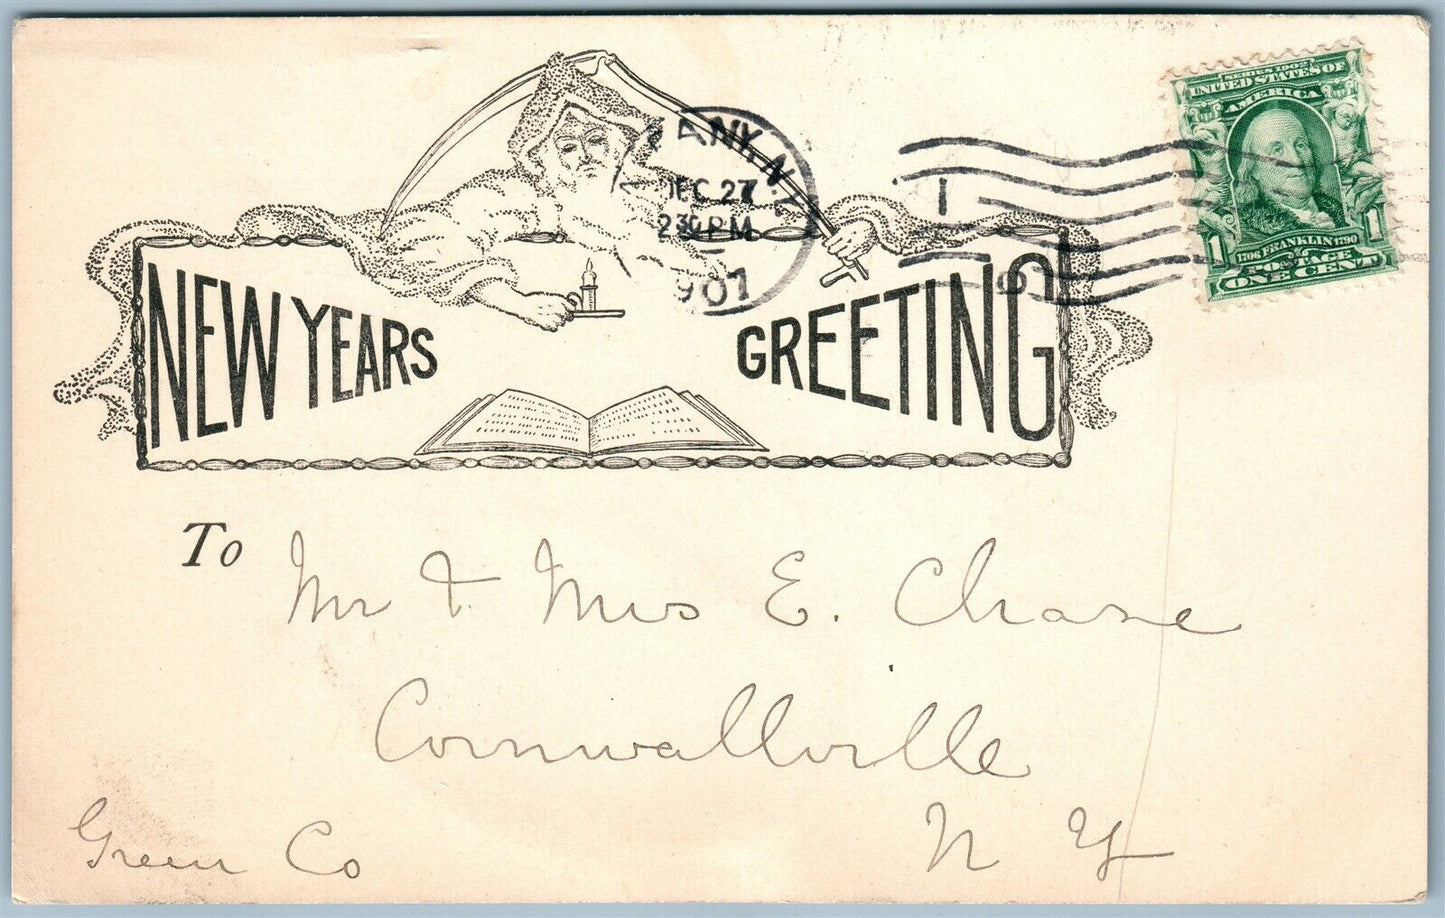 SERIES 1902
UNITED STATES OF
AMERICA
1706 FRANKLIN 1790
1 1
POSTAGE
ONE CENT
DEC 27
230 PM
1907
1
NEW YEARS GREETING
To Mr & Mrs E. Chase
Cornwallville
Green Co N Y